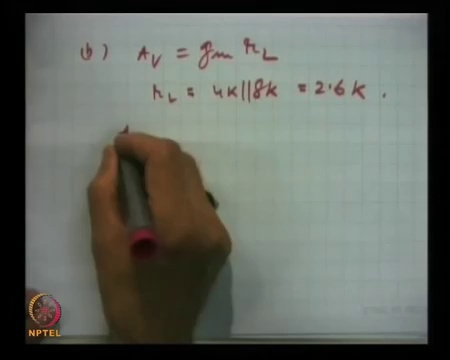 (b) Av = gm rL
rL = 4K||8K = 2.6 K.
NPTEL